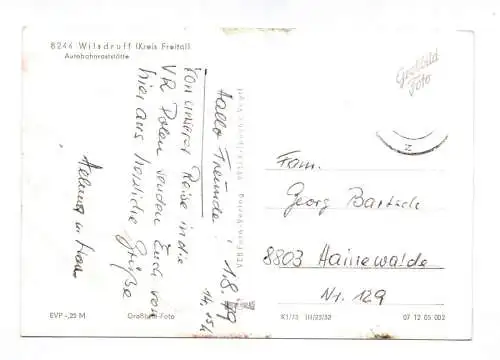 8244 Wilsdruff (Kreis Freital)
Autobahnraststätte
Hallo Freunde! 1.8.79
Von unserer Reise in die
VR Polen senden Euch von
hier aus herzliche Grüße
Helmut u.
Großbild
Foto
Fam.
Georg Bartsch
8803 Hainewalde
Nr. 129
EVP -,25 M
Großbild-Foto
K1/73 III/23/32
07 12 05 002